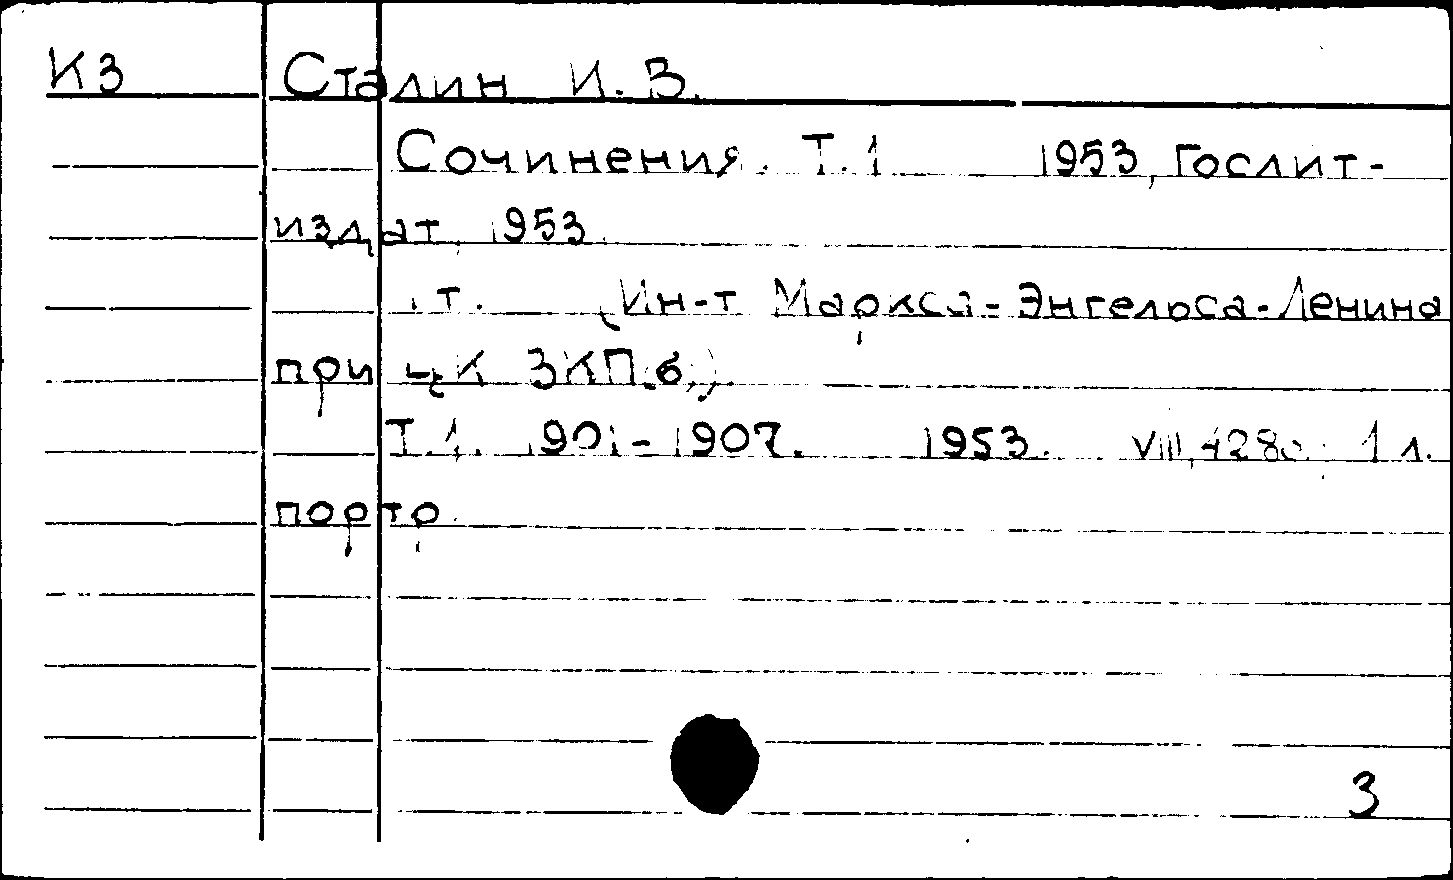 К3 Сталин И. В.
Сочинения. Т. 1 1953, Гослит-
издат, 1953.
т. (Ин-т Маркса-Энгельса-Ленина
при ЦК ВКП(б)).
Т. 1. 1901-1907. 1953. VIII, 428с. 1 л.
портр.
3